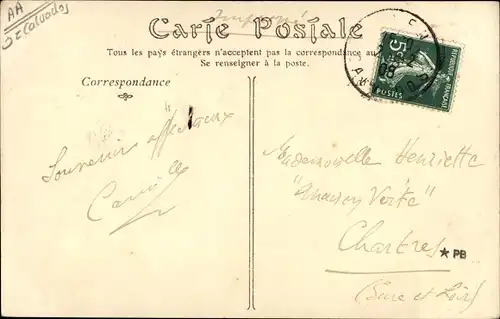 AA
Calvados
Imprimé
Carte Postale
Tous les pays étrangers n'acceptent pas la correspondance au
Se renseigner à la poste.
Correspondance
Souvenir affectueux
Camille
5c
POSTES
08
Mademoiselle Henriette
"Maison Verte"
Chartres
*PB
(Eure et Loir)